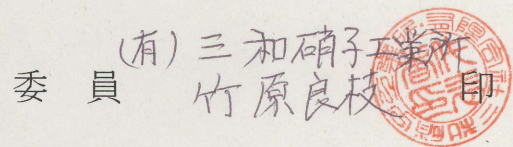 (有)三和硝子工業所
委員 竹原良枝 印